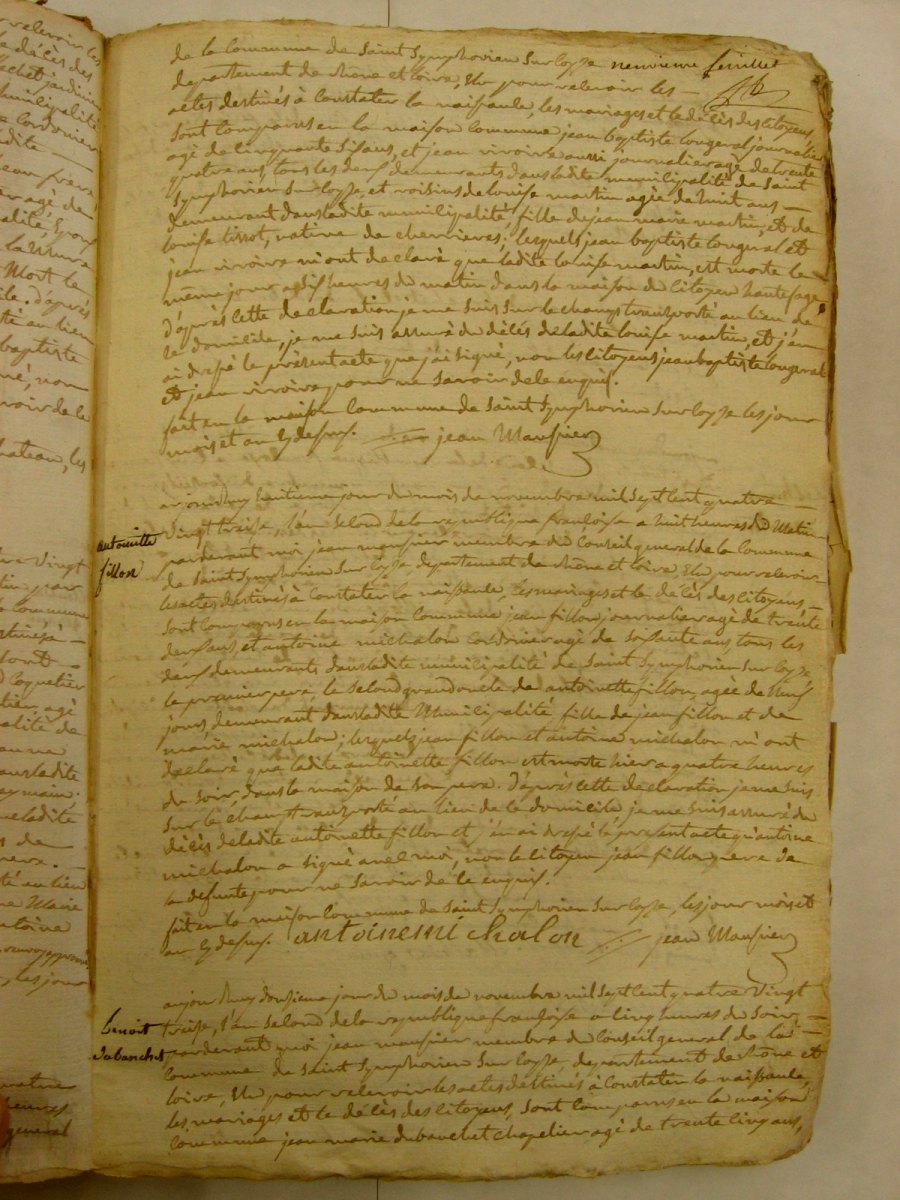 de la Commune de Saint Symphorien Sur Coyse neuvieme feuillet
departement de rhône et loire, Elu pour relevoir les —
actes destinés à Constater la naissance, les mariages et le décès des Citoyens,
Sont Comparus en la maison Commune jean baptiste longeral journalier
agé de Cinquante Six ans, et jean viroire aussi journalier agé de trente
quatre ans, tous les deux demeurants dans ladite municipalité de Saint
Symphorien Sur Coyse, et voisins de louise martin agée de huit ans —
demeurant dans ladite municipalité fille de jean marie martin, et de
louise tissot, native de cherrieres; lesquels jean baptiste longeral et
jean viroire m'ont declaré que ladite louise martin, est morte le —
même jour à Six heures du matin dans la maison du Citoyen hautefage
d'après cette declaration je me suis Sur le champ transporté au lieu de
ce domicile, je me suis assuré du décès de ladite louise martin, et j'en
ai dressé le présent acte que j'ai signé, non les Citoyens jean baptiste longeral
et jean viroire pour ne Savoir de ce enquis.
fait en la maison Commune de Saint Symphorien Sur Coyse les jour
mois et an Cy dessus. jean Maussier
aujourdhuy huitieme jour du mois de novembre mil Sept Cent quatre —
Vingt traise, l'an Second de la republique françoise a huit heures du Matin
antoinette
fillon
pardevant moi jean maussier membre du Conseil general de la Commune
de Saint Symphorien Sur Coyse departement de rhône et loire, Elu pour relevoir
les actes destinés à Constater la naissance, les mariages et le décès des Citoyens —
Sont Comparus en la maison Commune jean fillon, journalier agé de trente
deux ans, et antoine michalon Cordonier agé de Soixante ans, tous les
deux demeurants dans ladite municipalité de Saint Symphorien Sur Coyse,
le premier pere, le Second grand oncle de antoinette fillon, agée de Neuf
jours, demeurant dans ladite Municipalité fille de jean fillon et de
marie michalon; lesquels jean fillon et antoine michalon m'ont
declaré que ladite antoinette fillon est morte hier a quatre heures
du soir, dans la maison de Son pere. D'après cette declaration je me suis
Sur le champ transporté au lieu de ce domicile, je me suis assuré du
décès de ladite antoinette fillon et j'en ai dressé le present acte qu'antoine
michalon a signé avec moi, non le Citoyen jean fillon, pere de
la defunte pour ne Savoir de ce enquis.
fait en la maison Commune de Saint Symphorien Sur Coyse, les jour mois et
an Cy dessus. antoine michalon jean Maussier
aujourdhuy dousieme jour du mois de novembre mil Sept Cent quatre Vingt
traise, l'an Second de la republique françoise a Cinq heures du soir —
Benoit
dubanchet
pardevant moi jean maussier membre du Conseil general de la —
Commune de Saint Symphorien Sur Coyse, departement de rhône et
loire, Elu pour relevoir les actes destinés à Constater la naissance,
les mariages et le décès des Citoyens, Sont Comparus en la maison
Commune jean marie dubanchet chapelier agé de trente Cinq ans,